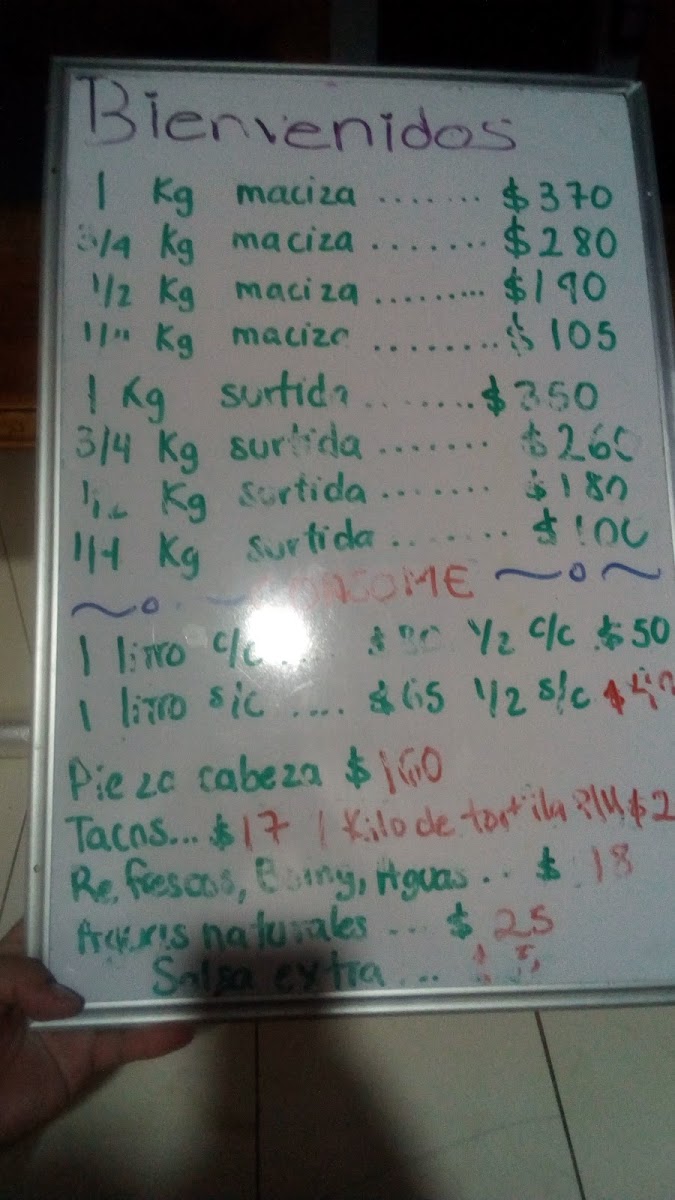 Bienvenidos
1 Kg maciza ....... $370
3/4 Kg maciza ....... $280
1/2 Kg maciza ......... $190
Kg maciza ........ $105
1 Kg surtida ....... $350
3/4 Kg surtida ....... $260
Kg surtida ....... $180
1/4 Kg surtida ....... $100
1 litro c/c .... 1/2 c/c $50
1 litro s/c .... $65 1/2 s/c
Pieza cabeza $160
Tacos... $17 1 Kilo de tortilla
Refrescos, Boing, Aguas .. $ 18
naturales ... $ 25
Salsa extra ...